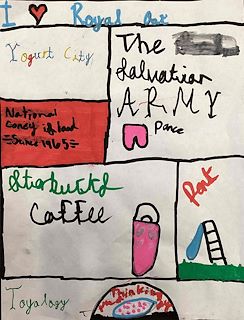 I ♥ Royal Oak
Yogurt City
The
Salvation
ARMY
Pance
National
Coney island
=Since 1965=
Starbucks
Coffee
Park
Toyology